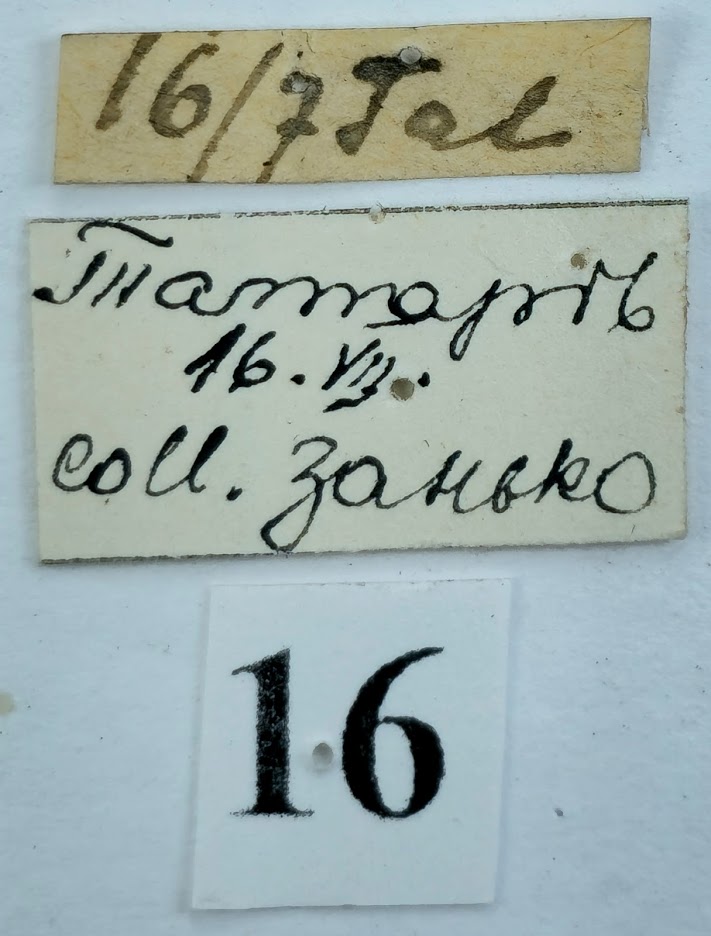 16/7 Tal
Татарів
16. VII.
coll. Занько
16